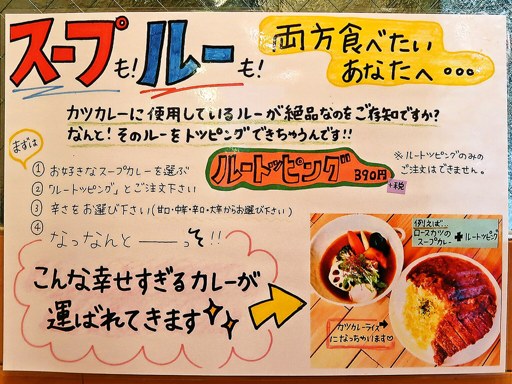 スープも！ルーも！
両方食べたい
あなたへ・・・
カツカレーに使用しているルーが絶品なのをご存知ですか？
なんと！そのルーをトッピングできちゃうんです!!
まずは
① お好きなスープカレーを選ぶ
② 「ルートッピング」とご注文下さい
③ 辛さをお選び下さい（甘口・中辛・辛口・大辛からお選び下さい）
④ なっなんとーーっそ!!
ルートッピング 390円
+税
※ルートッピングのみの
ご注文はできません。
こんな幸せすぎるカレーが
運ばれてきます
例えば…
ロースカツの
スープカレー ➕ ルートッピング
カツカレーライス
になっちゃいます♡